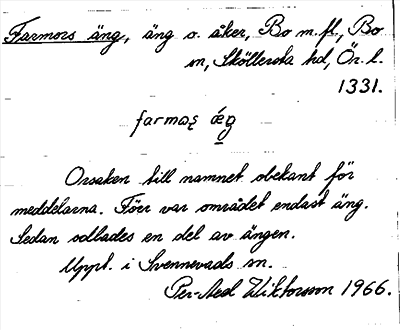 Farmors äng, äng o. åker, Bo m.fl., Bo
sn, Sköllersta hd, Ör. l.
1331.
farmos ǽŋ
Orsaken till namnet obekant för
meddelarna. Förr var området endast äng.
Sedan odlades en del av ängen.
Uppt. i Svennevads sn.
Per-Axel Wiktorsson 1966.